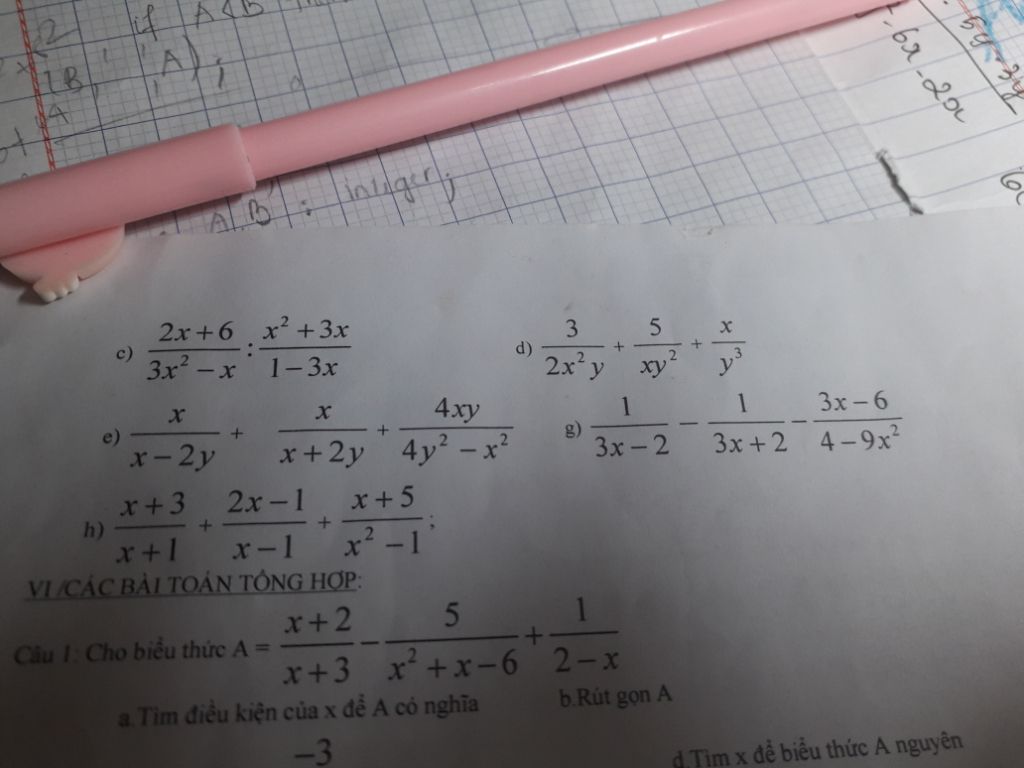 if A<B
A B : integer;
6x - 20x
c) \frac{2x+6}{3x^2-x} : \frac{x^2+3x}{1-3x} d) \frac{3}{2x^2y} + \frac{5}{xy^2} + \frac{x}{y^3}
e) \frac{x}{x-2y} + \frac{x}{x+2y} + \frac{4xy}{4y^2-x^2} g) \frac{1}{3x-2} - \frac{1}{3x+2} - \frac{3x-6}{4-9x^2}
h) \frac{x+3}{x+1} + \frac{2x-1}{x-1} + \frac{x+5}{x^2-1};
VI/CÁC BÀI TOÁN TỔNG HỢP:
Câu 1: Cho biểu thức A = \frac{x+2}{x+3} - \frac{5}{x^2+x-6} + \frac{1}{2-x}
a.Tìm điều kiện của x để A có nghĩa b.Rút gọn A
-3 d.Tìm x để biểu thức A nguyên